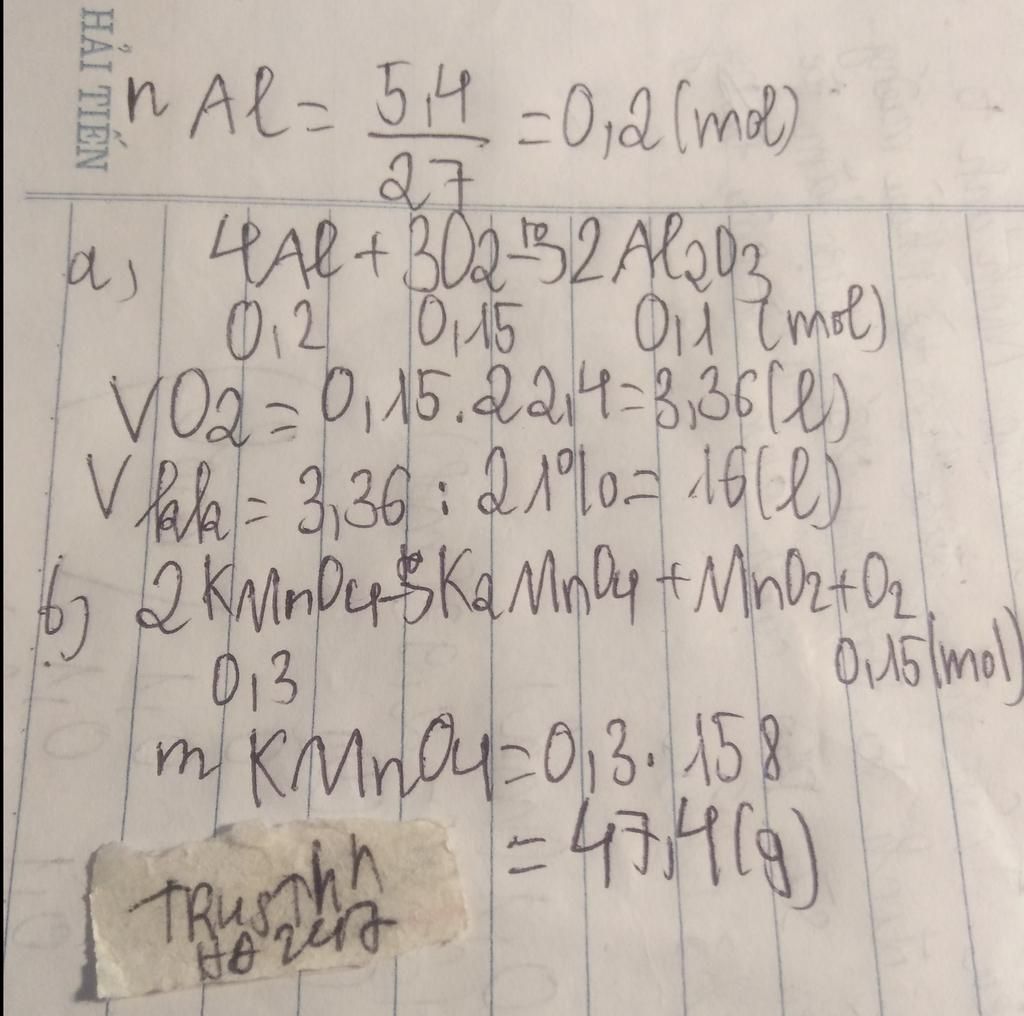 HẢI TIẾN
n Al = 5,4 / 27 = 0,2 (mol)
a, 4Al + 3O2 -to-> 2Al2O3
0,2 0,15 0,1 (mol)
VO2 = 0,15.22,4 = 3,36 (l)
V kk = 3,36 : 21% = 16 (l)
b) 2KMnO4 -to-> K2MnO4 + MnO2 + O2
0,3 0,15 (mol)
m KMnO4 = 0,3. 158
= 47,4 (g)